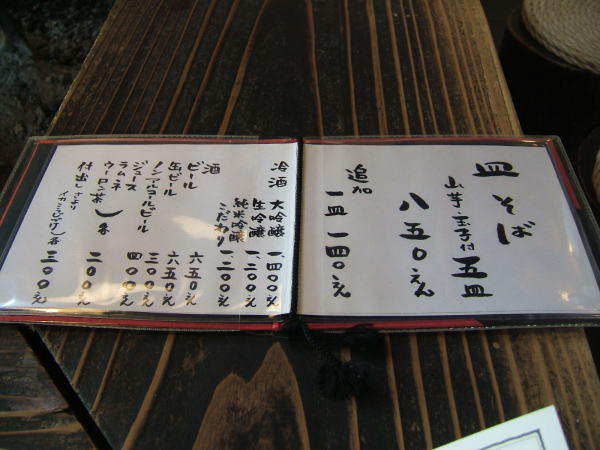 皿そば
山芋・玉子付 五皿
八五〇えん
追加
一皿 一四〇えん
冷酒 大吟醸 一、四〇〇え
生吟醸 一、二〇〇え
純米吟醸 こだわり 一、二〇〇え
酒
ビール 六五〇え
缶ビール 六五〇え
ノンアルコールビール 三〇〇え
ジュース 四〇〇え
ラムネ
ウーロン茶 各 二〇〇え
付出し さより
各 三〇〇え